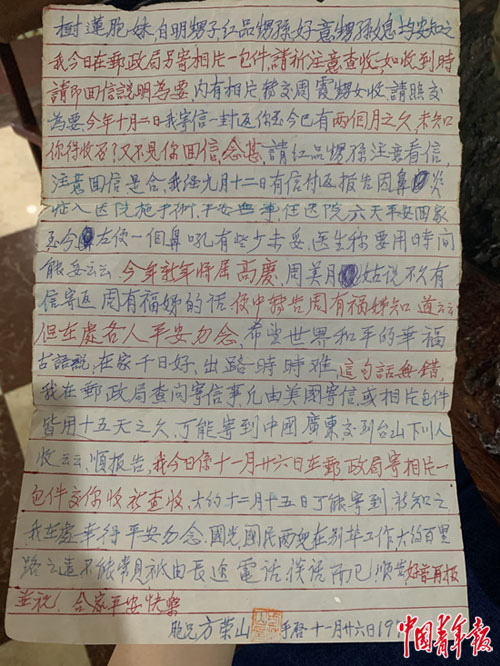 樹蓮胞妹自明甥子红品甥孫好意甥孫媳均安知之
我今日在郵政局另寄相片一包件,請祈注意查收,如收到時
請即回信説明為要内有相片替交周霞甥女收,請照交
為要今年十月二日我寄信一封返你至今已有两個月之久,未知
你得收否了又不見你回信,念甚,請红品甥孫注意看信,
注意回信是合,我在九月十二日有信付返报告因鼻炎
症入医院施手術,平安無事在医院六天平安回家
至今左便一個鼻吼有些少未妥,医生称要用時间
能妥云云 今年新年将届高慶,周美月姑说不久有
信寄返周有福姊的话,便中報告周有福姊知道云云
但在處各人平安勿念,希望世界和平的幸福
古語説,在家千日好,出路一時時难,這句話無錯,
我在郵政局查问寄信事,凡由美國寄信,或相片包件
皆用十五天之久,可能寄到中國廣東交到台山下川人
收云云,順报告,我今日係十一月廿六日在郵政局寄相片一
包件交你收祈查收,大約十二月十五日可能寄到祈知之
我在處幸得平安勿念,國光國民两兒在别埠工作大約百里
路之遠不能常見祗由長途電話,談话而已順告好音再报
並祝,合家平安快樂
胞兄方荣山 手啓十一月廿六日19
中國青年报